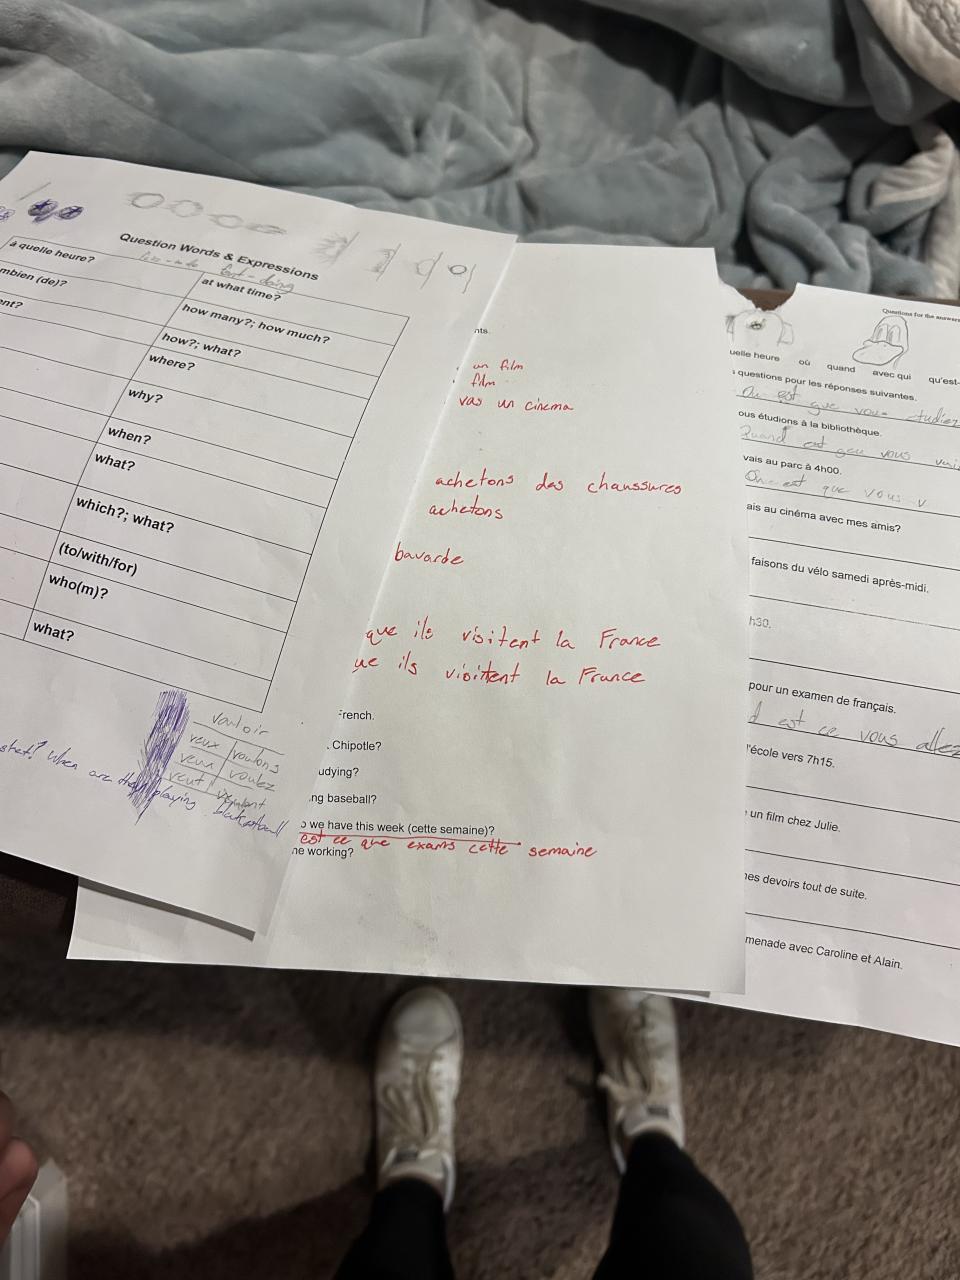 Question Words & Expressions
à quelle heure?
at what time?
mbien (de)?
how many?; how much?
ent?
how?; what?
where?
why?
when?
what?
which?; what?
(to/with/for)
who(m)?
what?
vouloir
veux voulons
veux voulez
veut
When are they playing
nts.
un film
film
vas un cinema
achetons des chaussures
achetons
bavarde
que ils visitent la France
ue ils visitent la France
French.
. Chipotle?
udying?
ng baseball?
o we have this week (cette semaine)?
est ce que exams cette semaine
ne working?
Questions for the answers
uelle heure où quand avec qui qu'est-
questions pour les réponses suivantes.
est que vous etudiez
ous étudions à la bibliothèque.
Quand est que vous
vais au parc à 4h00.
est que vous v
ais au cinéma avec mes amis?
faisons du vélo samedi après-midi.
h30.
pour un examen de français.
d est ce vous allez
l'école vers 7h15.
un film chez Julie.
nes devoirs tout de suite.
menade avec Caroline et Alain.